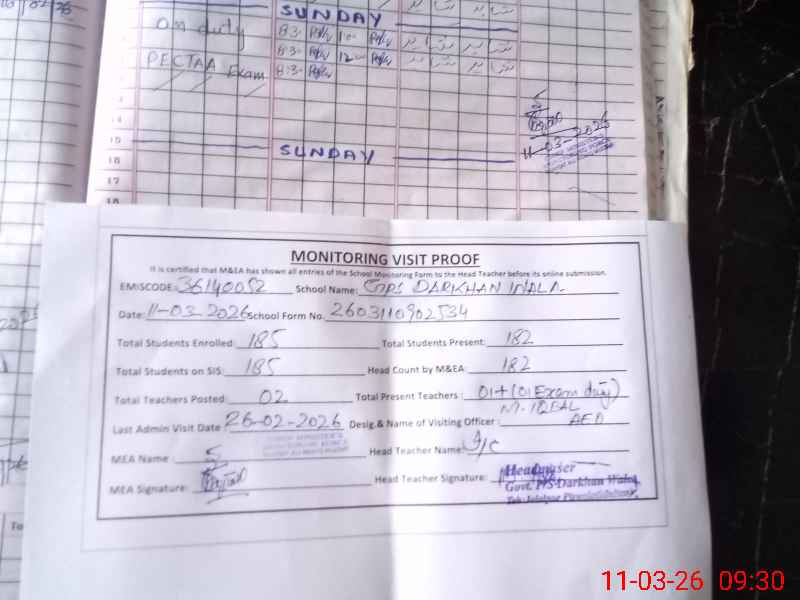 SUNDAY
on duty 83- 10-
83- 12-
PECTAA Exam 83-
11-03-2026
15 SUNDAY
16
17
18
MONITORING VISIT PROOF
It is certified that M&EA has shown all entries of the School Monitoring Form to the Head Teacher before its online submission.
EMISCODE: 36140052 School Name: GPS DARKHAN WALA
Date: 11-03-2026 School Form No. 2603110902534
Total Students Enrolled: 185 Total Students Present: 182
Total Students on SIS: 185 Head Count by M&EA: 182
Total Teachers Posted: 02 Total Present Teachers : 01+(01 Exam duty)
M. IQBAL
Last Admin Visit Date : 26-02-2026 Desig.& Name of Visiting Officer : AEO
MEA Name : Head Teacher Name: I/C
MEA Signature: Head Teacher Signature:
Govt. P/S Darkhan Wala
11-03-26 09:30